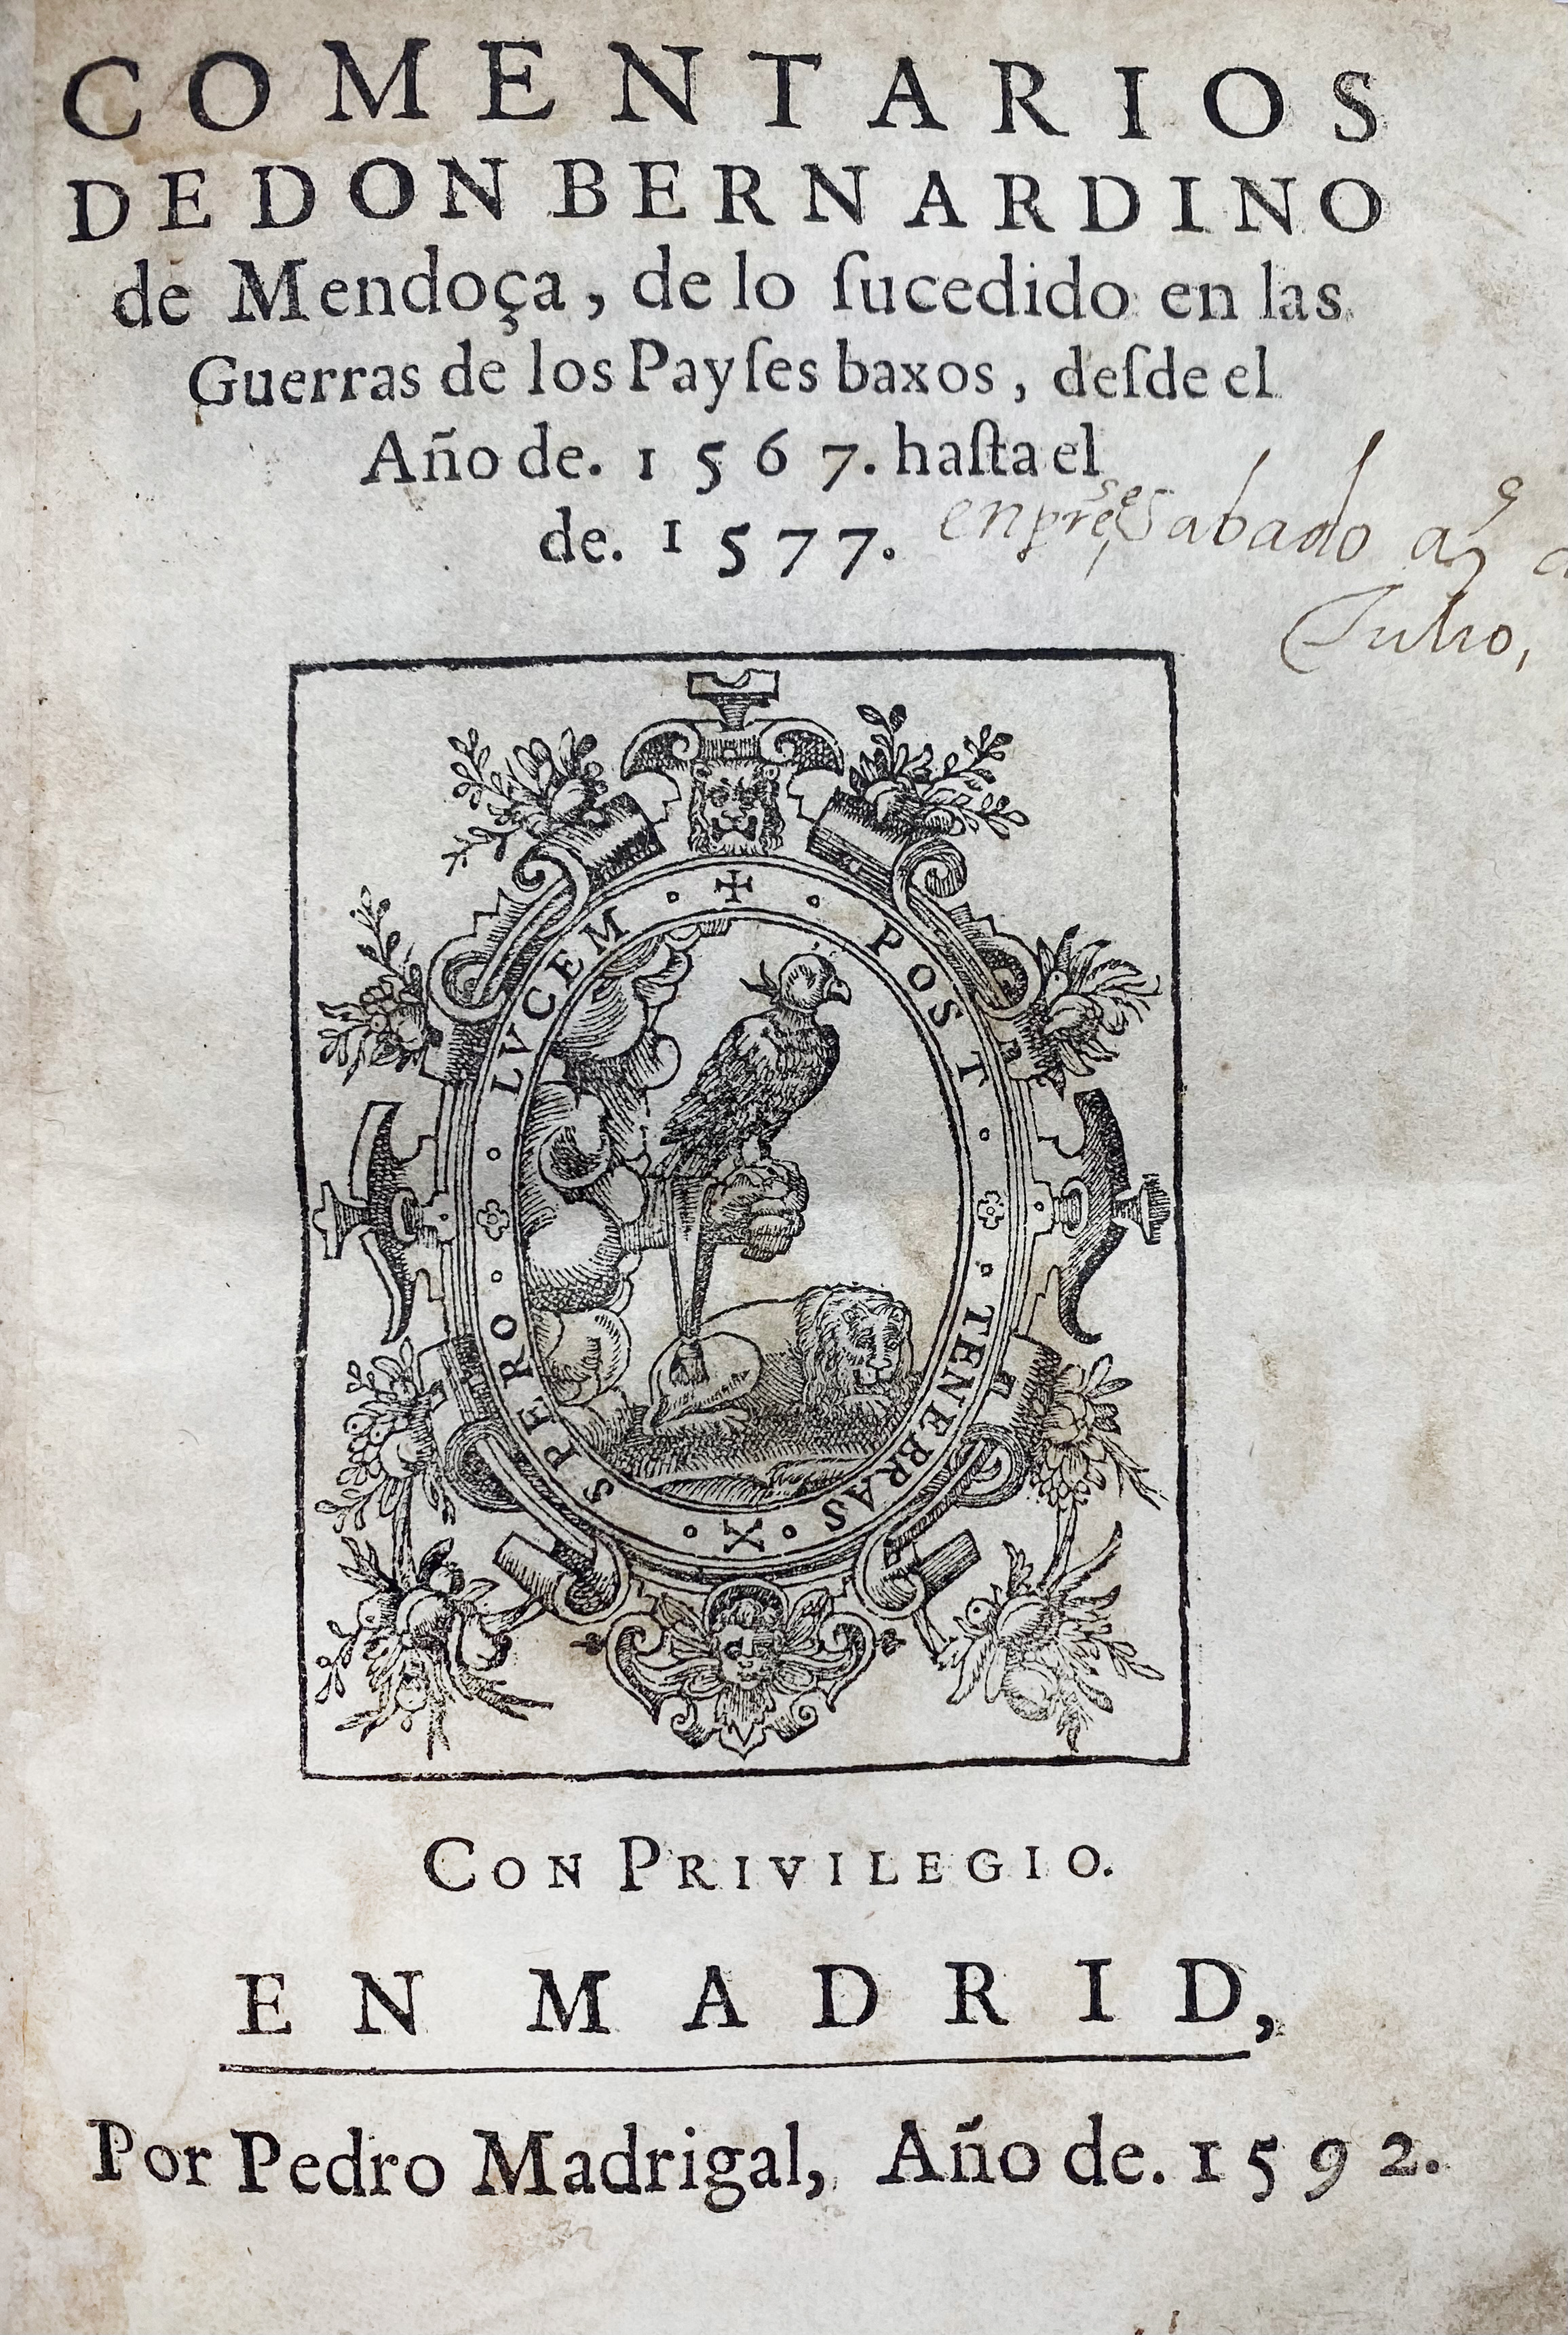 COMENTARIOS
DE DON BERNARDINO
de Mendoça, de lo ſucedido en las
Guerras de los Payſes baxos, deſde el
Año de. 1567. haſta el
de. 1577.
Sabado
Julio,
✠ POST TENEBRAS SPERO LVCEM
CON PRIVILEGIO.
EN MADRID,
Por Pedro Madrigal, Año de. 1592.